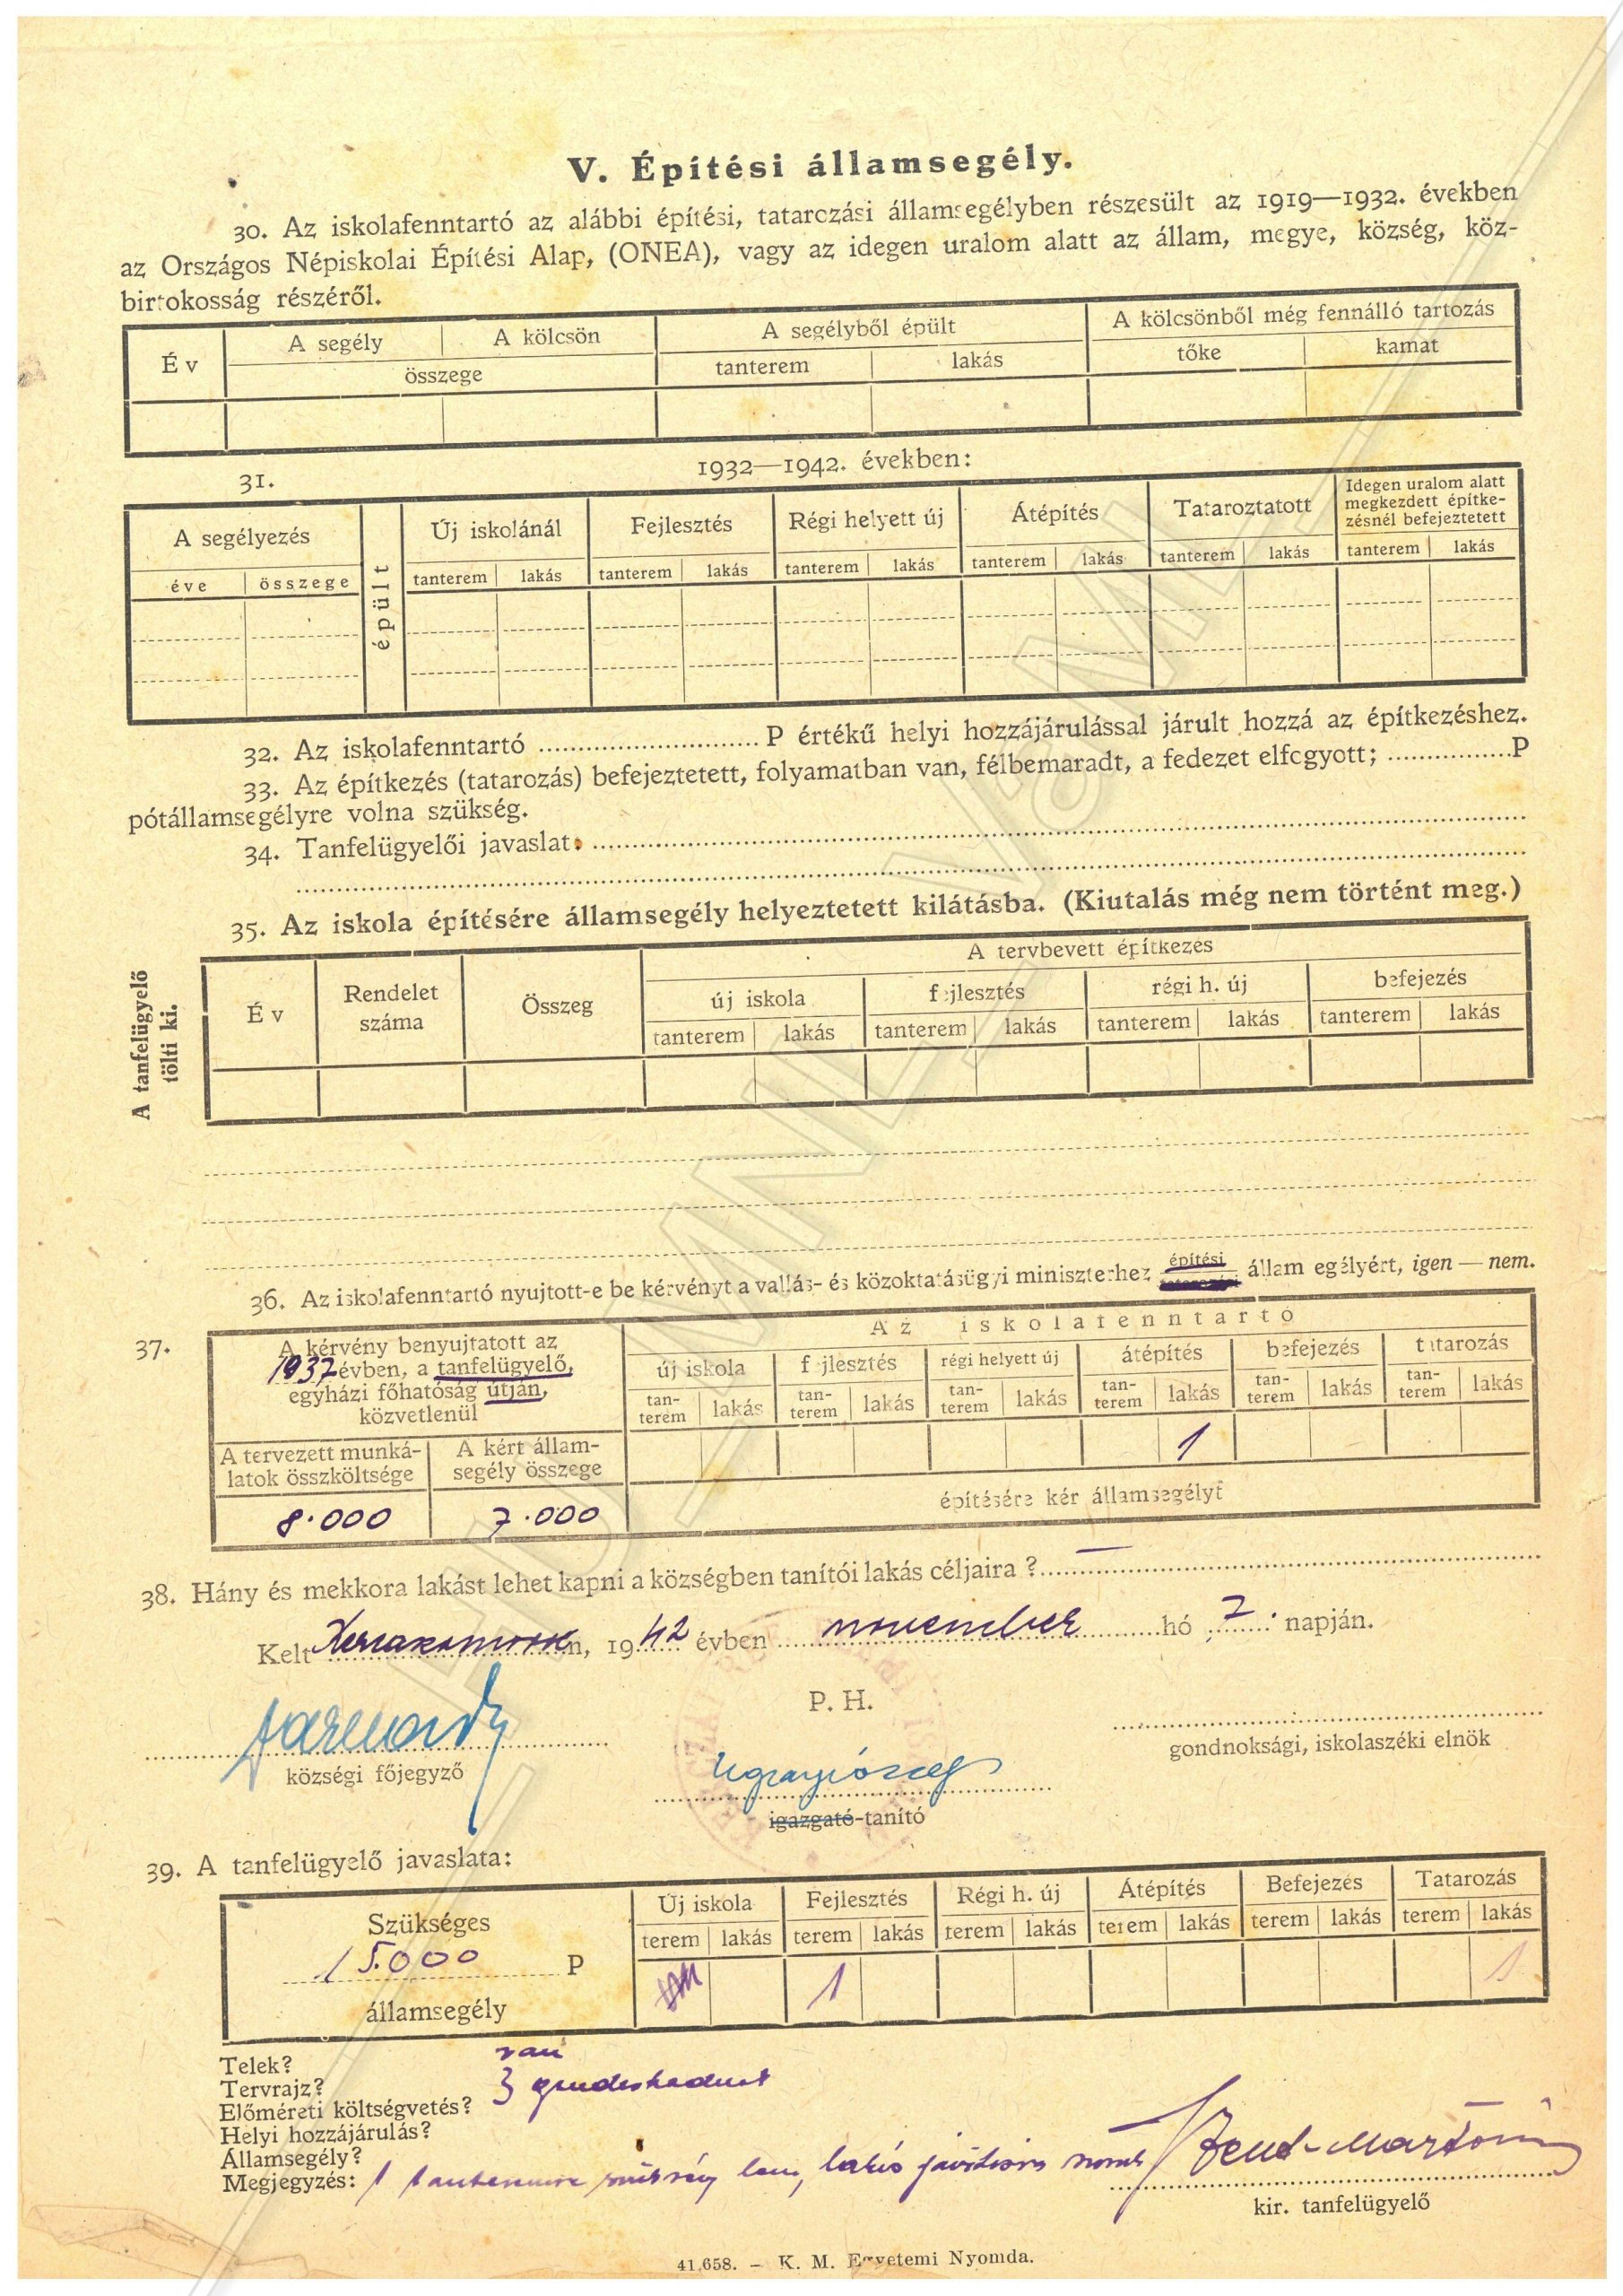 V. Építési államsegély.
30. Az iskolafenntartó az alábbi építési, tatarozási államsegélyben részesült az 1919—1932. években
az Országos Népiskolai Építési Alap, (ONEA), vagy az idegen uralom alatt az állam, megye, község, köz-
birtokosság részéről.
Év A segély A kölcsön A segélyből épült A kölcsönből még fennálló tartozás
összege tanterem lakás tőke kamat
31. 1932—1942. években:
A segélyezés épült Új iskolánál Fejlesztés Régi helyett új Átépítés Tataroztatott Idegen uralom alatt
megkezdett építke-
zésnél befejeztetett
éve összege tanterem lakás tanterem lakás tanterem lakás tanterem lakás tanterem lakás tanterem lakás
32. Az iskolafenntartó P értékű helyi hozzájárulással járult hozzá az építkezéshez.
33. Az építkezés (tatarozás) befejeztetett, folyamatban van, félbemaradt, a fedezet elfogyott; P
pótállamsegélyre volna szükség.
34. Tanfelügyelői javaslat.
35. Az iskola építésére államsegély helyeztetett kilátásba. (Kiutalás még nem történt meg.)
A tanfelügyelő
tölti ki.
Év Rendelet
száma Összeg A tervbevett építkezés
új iskola fejlesztés régi h. új befejezés
tanterem lakás tanterem lakás tanterem lakás tanterem lakás
36. Az iskolafenntartó nyujtott-e be kérvényt a vallás- és közoktatásügyi miniszterhez építési államsegélyért, igen — nem.
37. A kérvény benyujtatott az
1937 évben, a tanfelügyelő,
egyházi főhatóság útján,
közvetlenül
Az iskolafenntartó
új iskola fejlesztés régi helyett új átépítés befejezés tatarozás
tan-
terem lakás tan-
terem lakás tan-
terem lakás tan-
terem lakás tan-
terem lakás tan-
terem lakás
1
A tervezett munká-
latok összköltsége A kért állam-
segély összege
8.000 7.000 építésére kér államsegélyt
38. Hány és mekkora lakást lehet kapni a községben tanítói lakás céljaira ? —
Kelt n, 1942 évben november hó 7. napján.
P. H.
községi főjegyző
gondnoksági, iskolaszéki elnök
igazgató-tanító
39. A tanfelügyelő javaslata:
Szükséges
15.000 P
államsegély
Új iskola Fejlesztés Régi h. új Átépítés Befejezés Tatarozás
terem lakás terem lakás terem lakás terem lakás terem lakás terem lakás
1 1
Telek? van
Tervrajz?
Előméreti költségvetés?
Helyi hozzájárulás?
Államsegély?
Megjegyzés: 1 tanteremre
kir. tanfelügyelő
41.658. — K. M. Egyetemi Nyomda.